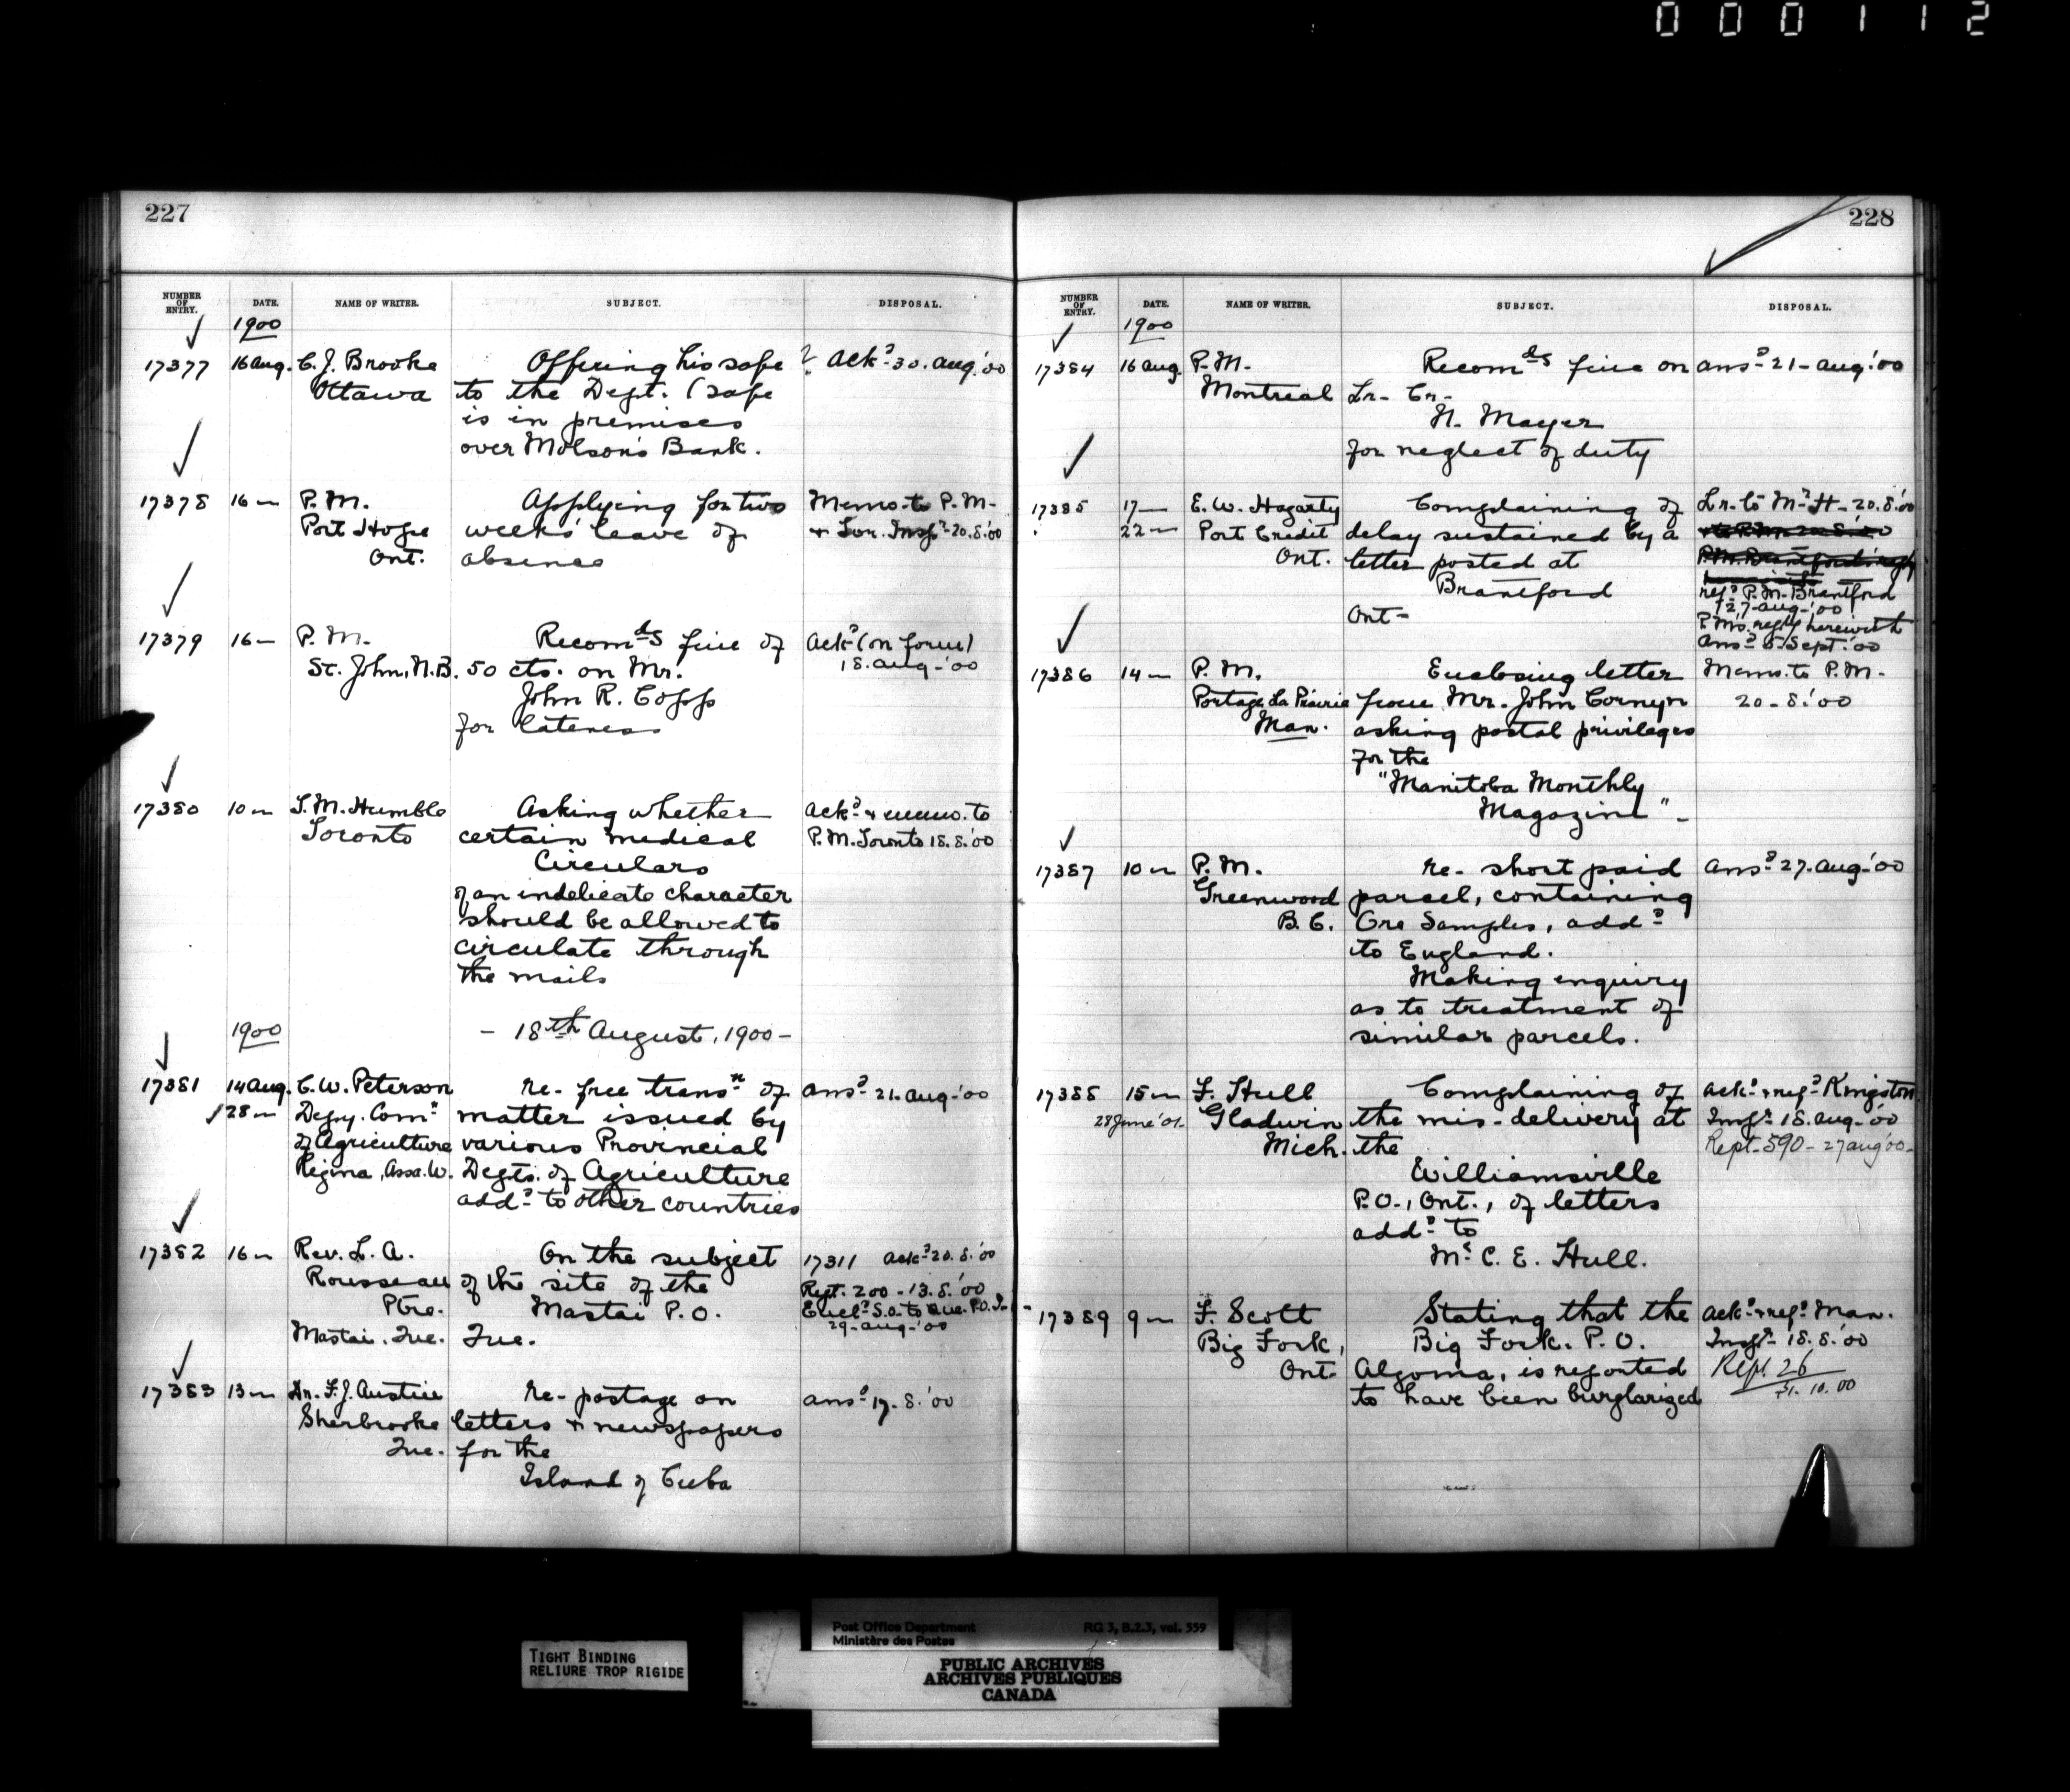 000112
227
NUMBER OF ENTRY. DATE. NAME OF WRITER. SUBJECT. DISPOSAL.
1900
17377 16 Aug. C. J. Brooke Offering his safe ? Ack.d 30. Aug. '00
Ottawa to the Dept. (safe
is in premises
over Molson's Bank.
17378 16 " P.M. Applying for two Memo. to P.M.
Port Hope weeks' leave of
Ont. absence
17379 16 " P.M. Recom.ds fine of Ack.d (on form)
St. John, N.B. 50 cts. on Mr. 18. Aug. '00
John R. Copp
for lateness
17380 10 " T. M. Humble Asking whether Ack.d & memo. to
Toronto certain medical P.M. Toronto 18.8.'00
Circulars
of an indelicate character
should be allowed to
circulate through
the mails
1900 - 18th August, 1900 -
17381 14 Aug. C. W. Peterson re- free trans.n of Ans.d 21. Aug. '00
28 " Depy. Com.r matter issued by
of Agriculture various Provincial
Regina, Assa. W. Depts. of Agriculture
add.d to other countries
17382 16 " Rev. L. A. On the subject 17311 Ack.d 20.8.'00
Rousseau of the site of the Rept. 200 - 13.8.'00
Ptre. Mastai P.O.
Mastai, Que. Que. 29. Aug. '00
17383 13 " Dr. F. J. Austin re- postage on Ans.d 17.8.'00
Sherbrooke letters & newspapers
Que. for the
Island of Cuba
228
NUMBER OF ENTRY. DATE. NAME OF WRITER. SUBJECT. DISPOSAL.
1900
17384 16 Aug. P.M. Recom.ds fine on Ans.d 21 - Aug. '00
Montreal Lr. Cr.
N. Mayer
for neglect of duty
17385 17 E. W. Hagarty Complaining of Lr. to Mr. H - 20.8.'00
22 " Port Credit delay sustained by a
Ont. letter posted at
Brantford ref.d P.M. Brantford
Ont - 27 - Aug. '00
P.M's. reply herewith
Ans.d 5 Sept. '00
17386 14 " P.M. Enclosing letter Memo. to P.M.
Portage La Prairie from Mr. John Cornyn 20.8.'00
Man. asking postal privileges
for the
"Manitoba Monthly
Magazine" -
17387 10 " P.M. re- short paid Ans.d 27. Aug. '00
Greenwood parcel, containing
B.C. Ore Samples, add.d
to England.
Making enquiry
as to treatment of
similar parcels.
17388 15 " F. Hull Complaining of Ack.d & ref.d Kingston
28 June '01. Gladwin the mis-delivery at Inspr. 18. Aug. '00
Mich. the Rept. 590 - 27 Aug '00 -
Williamsville
P.O., Ont., of letters
add.d to
Mr. C. E. Hull.
17389 9 " F. Scott Stating that the Ack.d & ref.d Man.
Big Fork, Big Fork P.O. Inspr. 18.8.'00
Ont. Algoma, is reported Rept. 26
to have been burglarized 31.10.00
Post Office Department RG 3, B.2.3, vol. 559
Ministère des Postes
TIGHT BINDING
RELIURE TROP RIGIDE
PUBLIC ARCHIVES
ARCHIVES PUBLIQUES
CANADA